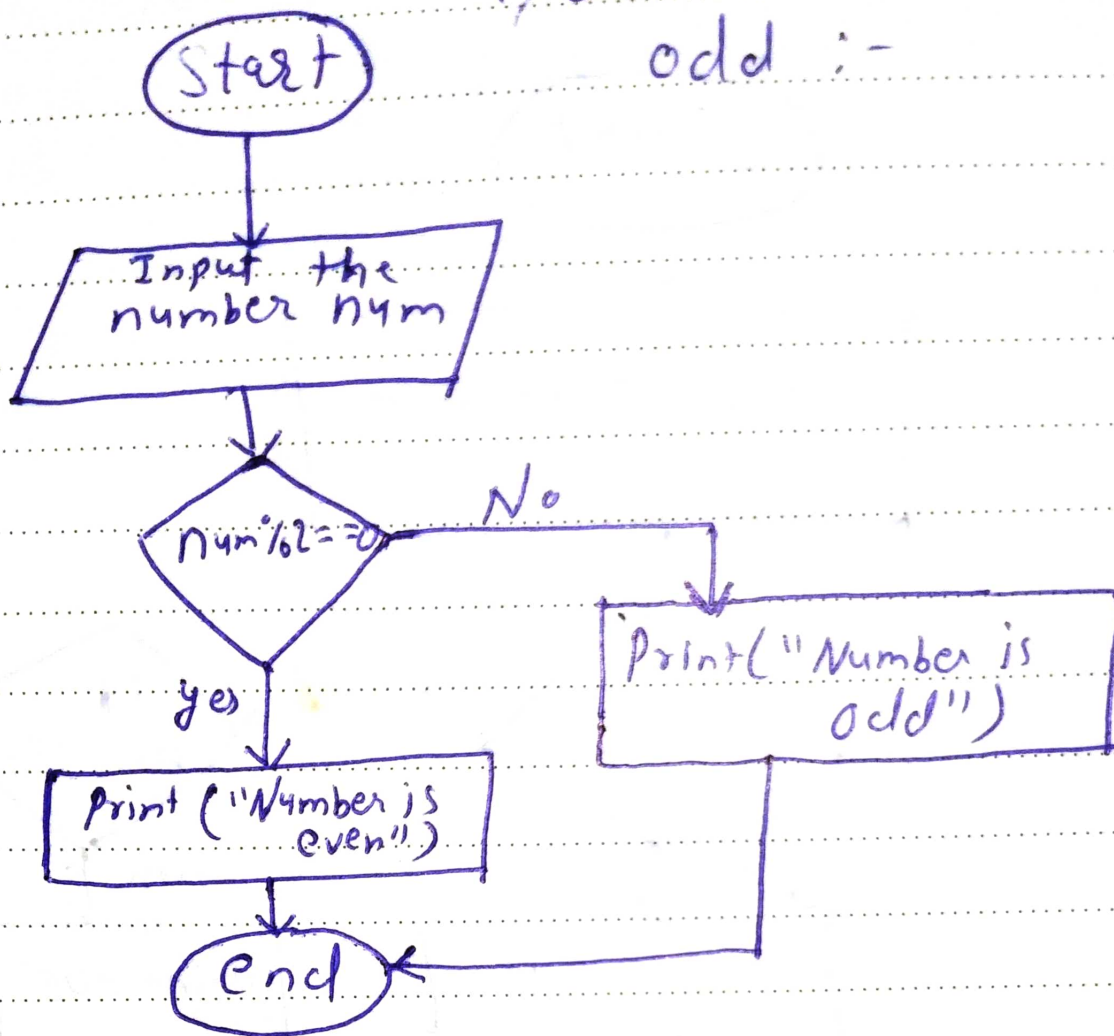 odd :-
Start
Input the
number num
num%2==0
No
yes
Print("Number is
odd")
Print ("Number is
even")
end